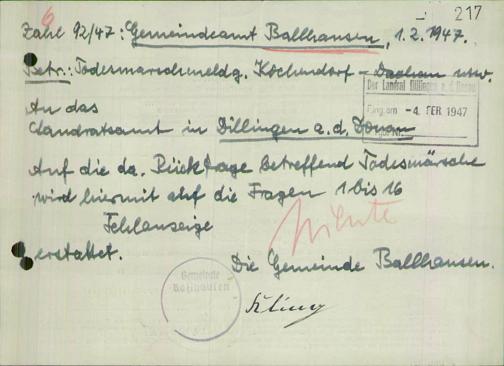 217
6
Zahl 92/47: Gemeindeamt Ballhausen, 1.2.1947.
Betr.: Todesmarschmeldg. Kochendorf – Dachau usw.
Der Landrat Dillingen a. d. Donau
An das
Eing. am -4. FEB. 1947
Landratsamt in Dillingen a.d. Donau
Auf die da. Rückfrage betreffend Todesmärsche
wird hiermit auf die Fragen 1 bis 16
Fehlanzeige
erstattet.
Die Gemeinde Ballhausen.
Gemeinde
Ballhausen